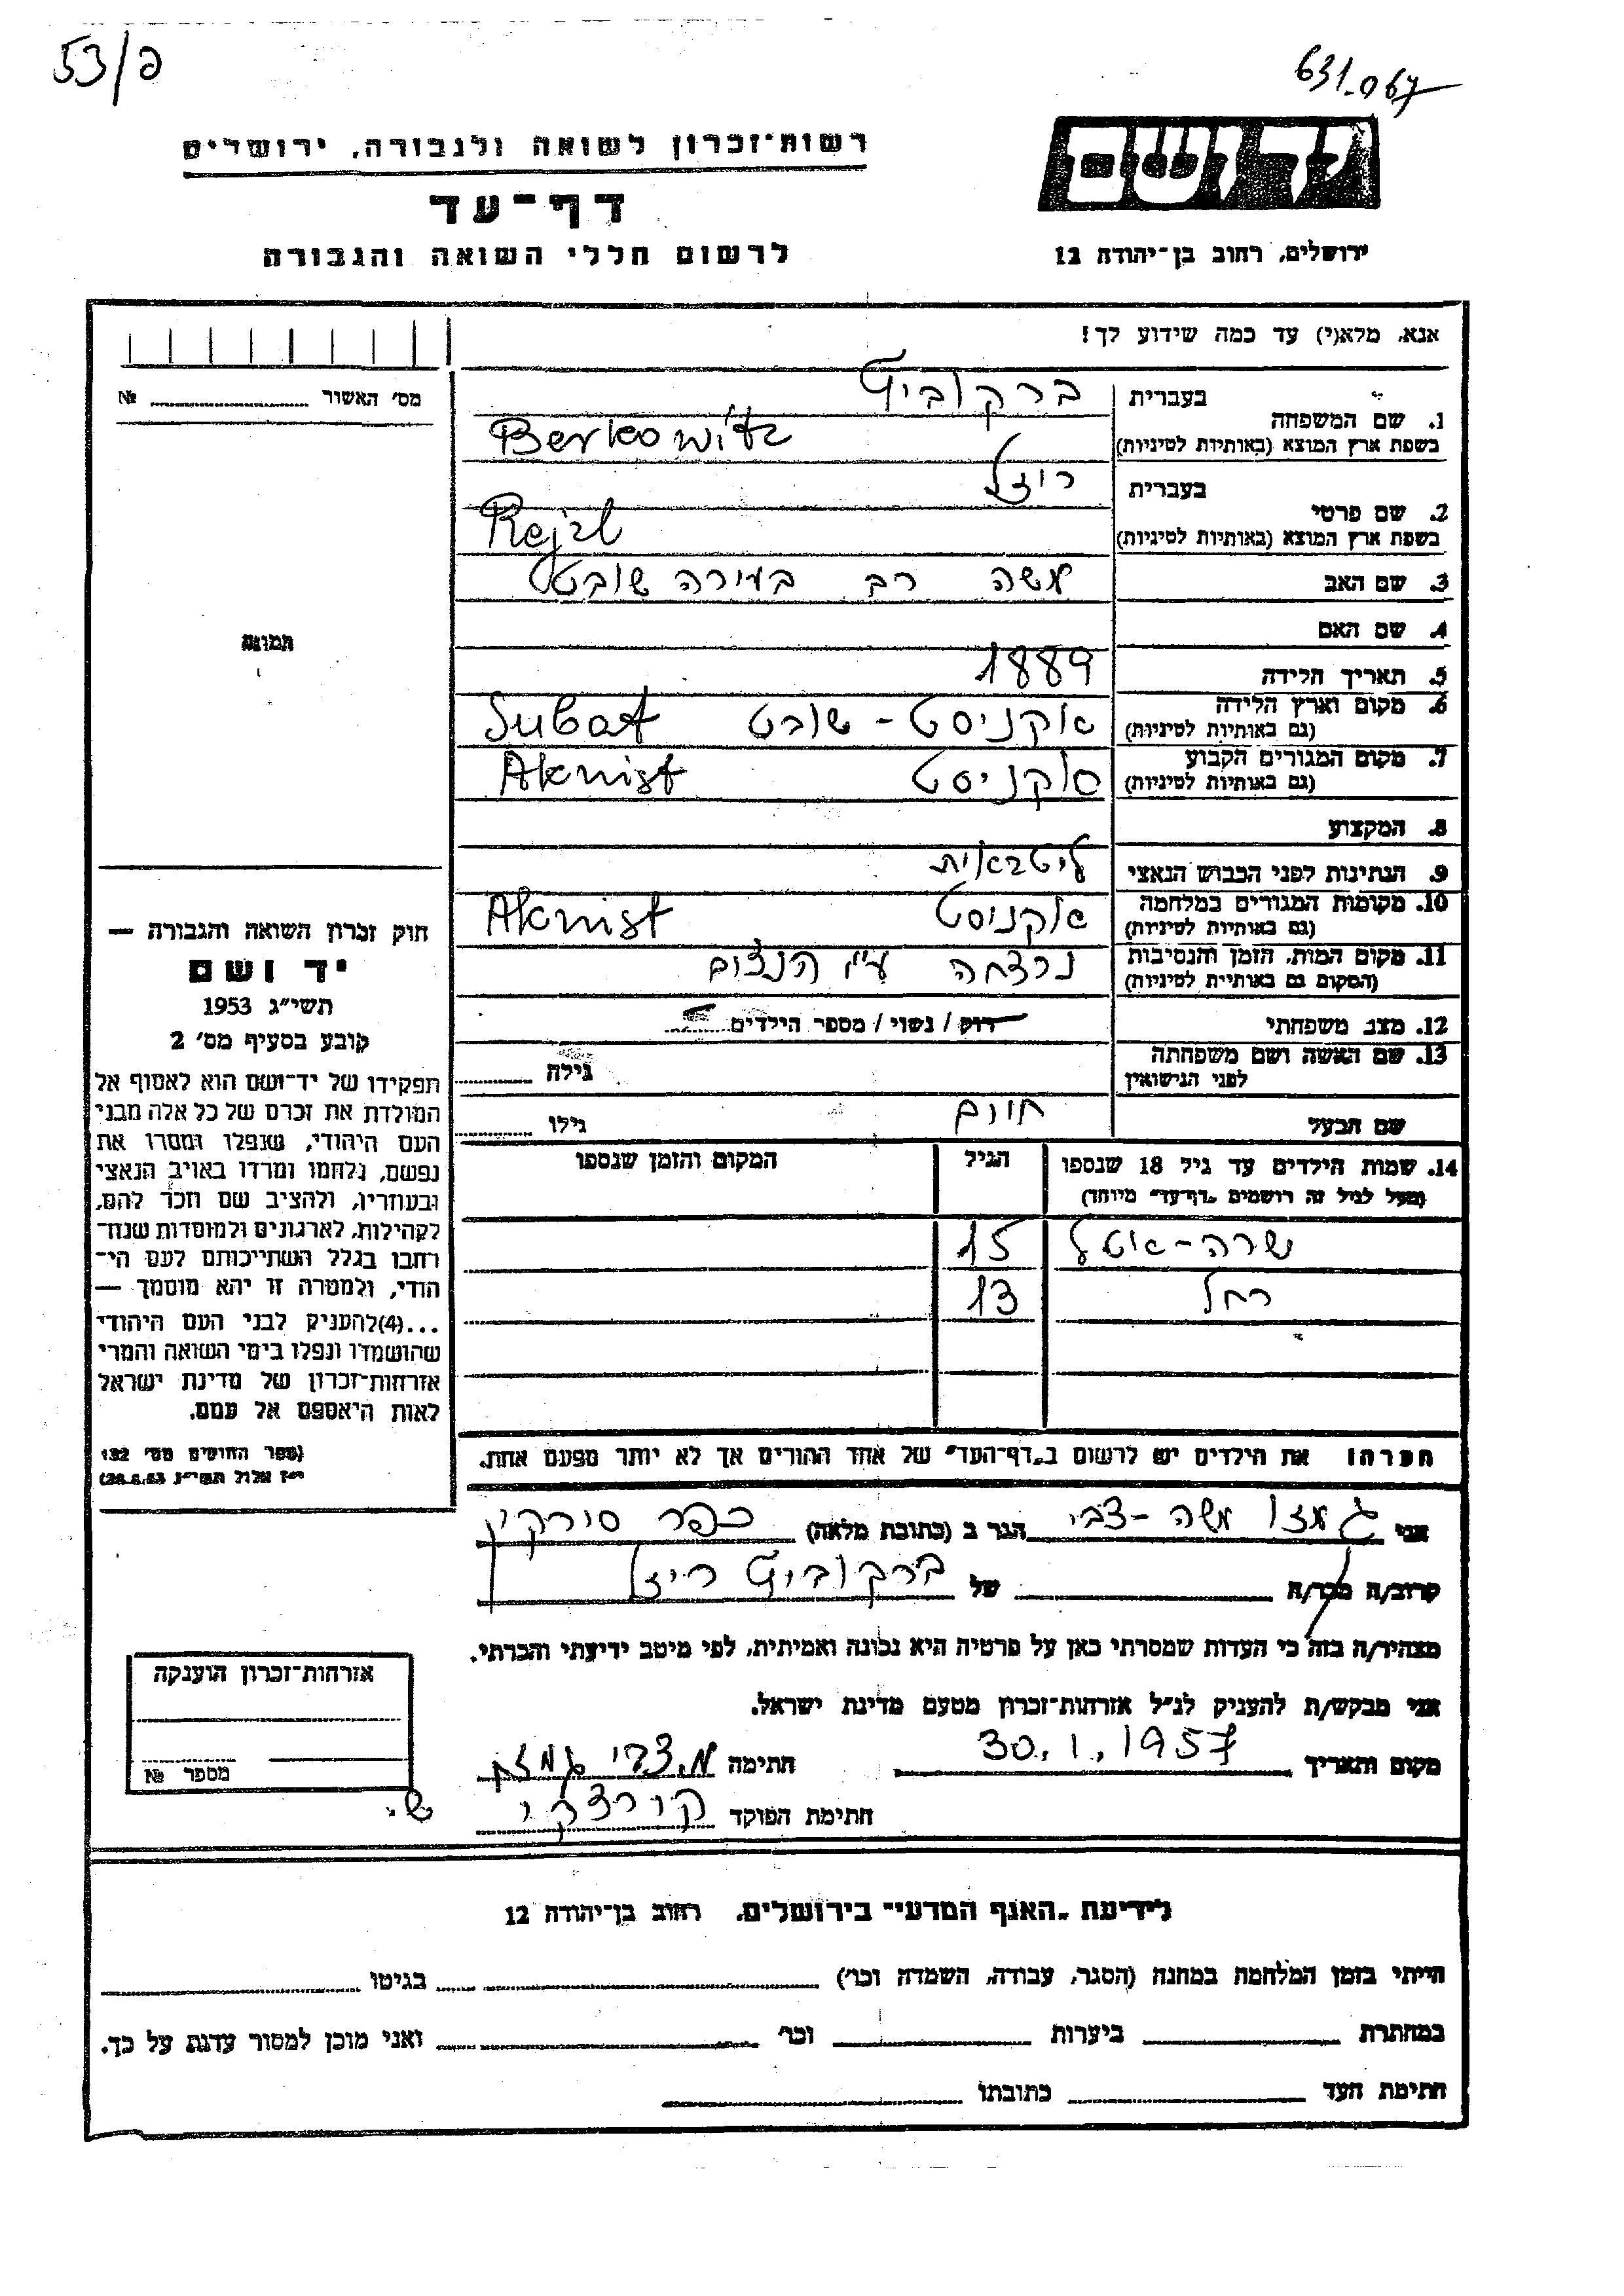 53/פ
631.067
רשות־זכרון לשואה ולגבורה, ירושלים
דף־עד
לרשום חללי השואה והגבורה
ידושם
ירושלים, רחוב בן־יהודה 12
אנא, מלא(י) עד כמה שידוע לך!
מס׳ האשור № 
בעברית ברקוביץ
1. שם המשפחה
בשפת ארץ המוצא (באותיות לטיניות) Berkowitz
בעברית רוזל
2. שם פרטי
בשפת ארץ המוצא (באותיות לטיניות) Rejzl
3. שם האב משה רב בעירה שובט
4. שם האם
תמונה
5. תאריך הלידה 1889
6. מקום וארץ הלידה
(גם באותיות לטיניות) אקניסט - שובט Subat
7. מקום המגורים הקבוע
(גם באותיות לטיניות) אקניסט Aknist
8. המקצוע
9. הנתינות לפני הכבוש הנאצי ליטבאית
10. מקומות המגורים במלחמה
(גם באותיות לטיניות) אקניסט Aknist
11. מקום המות, הזמן והנסיבות
(המקום גם באותיית לטיניות) נרצחה ע״י הנצים
12. מצב משפחתי רוק / נשוי / מספר הילדים
13. שם האשה ושם משפחתה
לפני הנישואין גילה
שם הבעל חיים גילו
14. שמות הילדים עד גיל 18 שנספו הגיל המקום והזמן שנספו
(מעל לגיל זה רושמים „דף־עד״ מיוחד)
שרה-אטל 15
רחל 13
חוק זכרון השואה והגבורה —
יד ושם
תשי״ג 1953
קובע בסעיף מס׳ 2
תפקידו של יד־ושם הוא לאסוף אל
המולדת את זכרם של כל אלה מבני
העם היהודי, שנפלו ומסרו את
נפשם, נלחמו ומרדו באויב הנאצי
ובעוזריו, ולהציב שם וזכר להם,
לקהילות, לארגונים ולמוסדות שנח־
רחבו בגלל השתייכותם לעם הי־
הודי, ולמטרה זו יהא מוסמך —
...(4)להעניק לבני העם היהודי
שהושמדו ונפלו בימי השואה והמרי
אזרחות־זכרון של מדינת ישראל
לאות היאספם אל עמם.
(ספר החוקים מס׳ 132
י״ז אלול תשי״ג 28.8.53)
הערה: את הילדים יש לרשום ב„דף־העד״ של אחד ההורים אך לא יותר מפעם אחת.
אני גמזו משה-צבי הגר ב (כתובת מלאה) כפר סירקין
קרוב/ה מכר/ה של ברקוביץ ריזל
מצהיר/ה בזה כי העדות שמסרתי כאן על פרטיה היא נכונה ואמיתית, לפי מיטב ידיעתי והכרתי.
אני מבקש/ת להעניק לנ״ל אזרחות־זכרון מטעם מדינת ישראל.
מקום ותאריך 30.1.1957 חתימה מ.צבי גמזו
חתימת הפוקד
אזרחות־זכרון הוענקה
מספר №
ש.
לידיעת „האגף המדעי״ בירושלים, רחוב בן־יהודה 12
הייתי בזמן המלחמה במחנה (הסגר, עבודה, השמדה וכר׳) בגיטו
במחתרת ביערות וכר׳ ואני מוכן למסור עדות על כך.
חתימת העד כתובתו